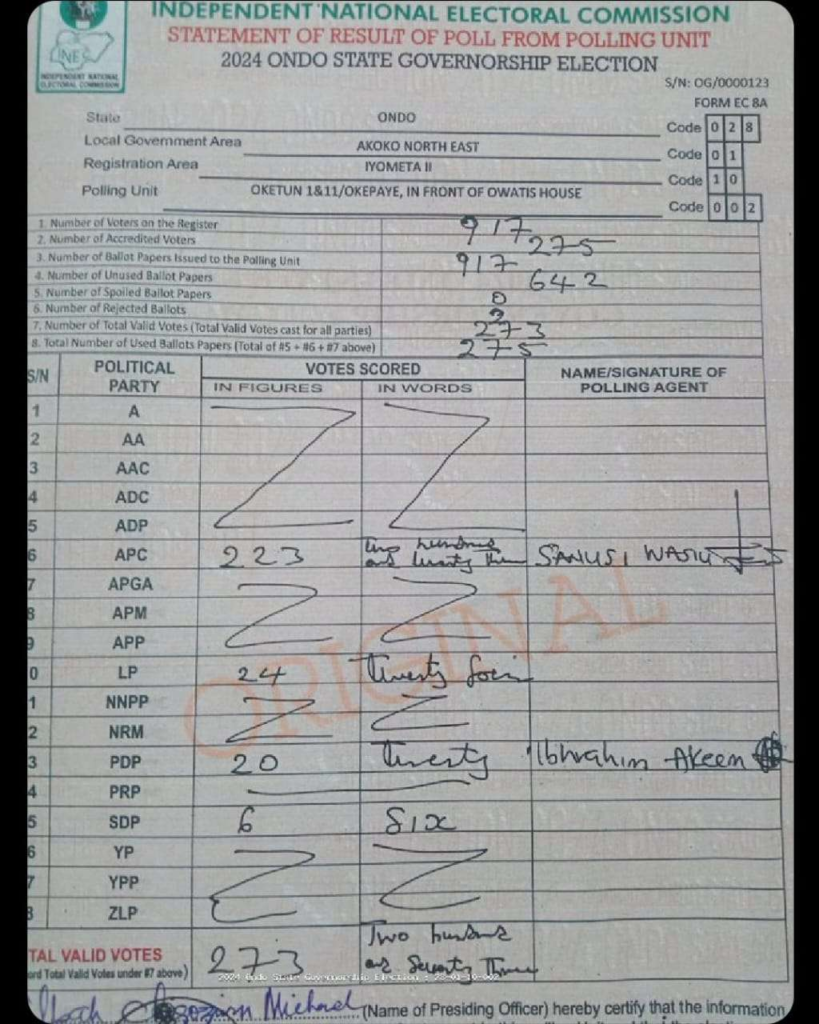 INDEPENDENT NATIONAL ELECTORAL COMMISSION
STATEMENT OF RESULT OF POLL FROM POLLING UNIT
2024 ONDO STATE GOVERNORSHIP ELECTION
INEC
INDEPENDENT NATIONAL
ELECTORAL COMMISSION
S/N: OG/0000123
FORM EC 8A
State ONDO Code 0 2 8
Local Government Area AKOKO NORTH EAST Code 0 1
Registration Area IYOMETA II Code 1 0
Polling Unit OKETUN 1&11/OKEPAYE, IN FRONT OF OWATIS HOUSE Code 0 0 2
1. Number of Voters on the Register 917
2. Number of Accredited Voters 275
3. Number of Ballot Papers Issued to the Polling Unit 917
4. Number of Unused Ballot Papers 642
5. Number of Spoiled Ballot Papers 0
6. Number of Rejected Ballots 2
7. Number of Total Valid Votes (Total Valid Votes cast for all parties) 273
8. Total Number of Used Ballots Papers (Total of #5 + #6 + #7 above) 275
S/N POLITICAL PARTY VOTES SCORED NAME/SIGNATURE OF POLLING AGENT
IN FIGURES IN WORDS
1 A
2 AA
3 AAC
4 ADC
5 ADP
6 APC 223 Two hundred and twenty three SANUSI WASIU
7 APGA
8 APM
9 APP
0 LP 24 Twenty four
1 NNPP
2 NRM
3 PDP 20 Twenty Ibhrahim Akeem
4 PRP
5 SDP 6 Six
6 YP
7 YPP
8 ZLP
ORIGINAL
TAL VALID VOTES 273 Two hundred and Seventy Three
ord Total Valid Votes under #7 above)
2024 Ondo State Governorship Election
Michael (Name of Presiding Officer) hereby certify that the information